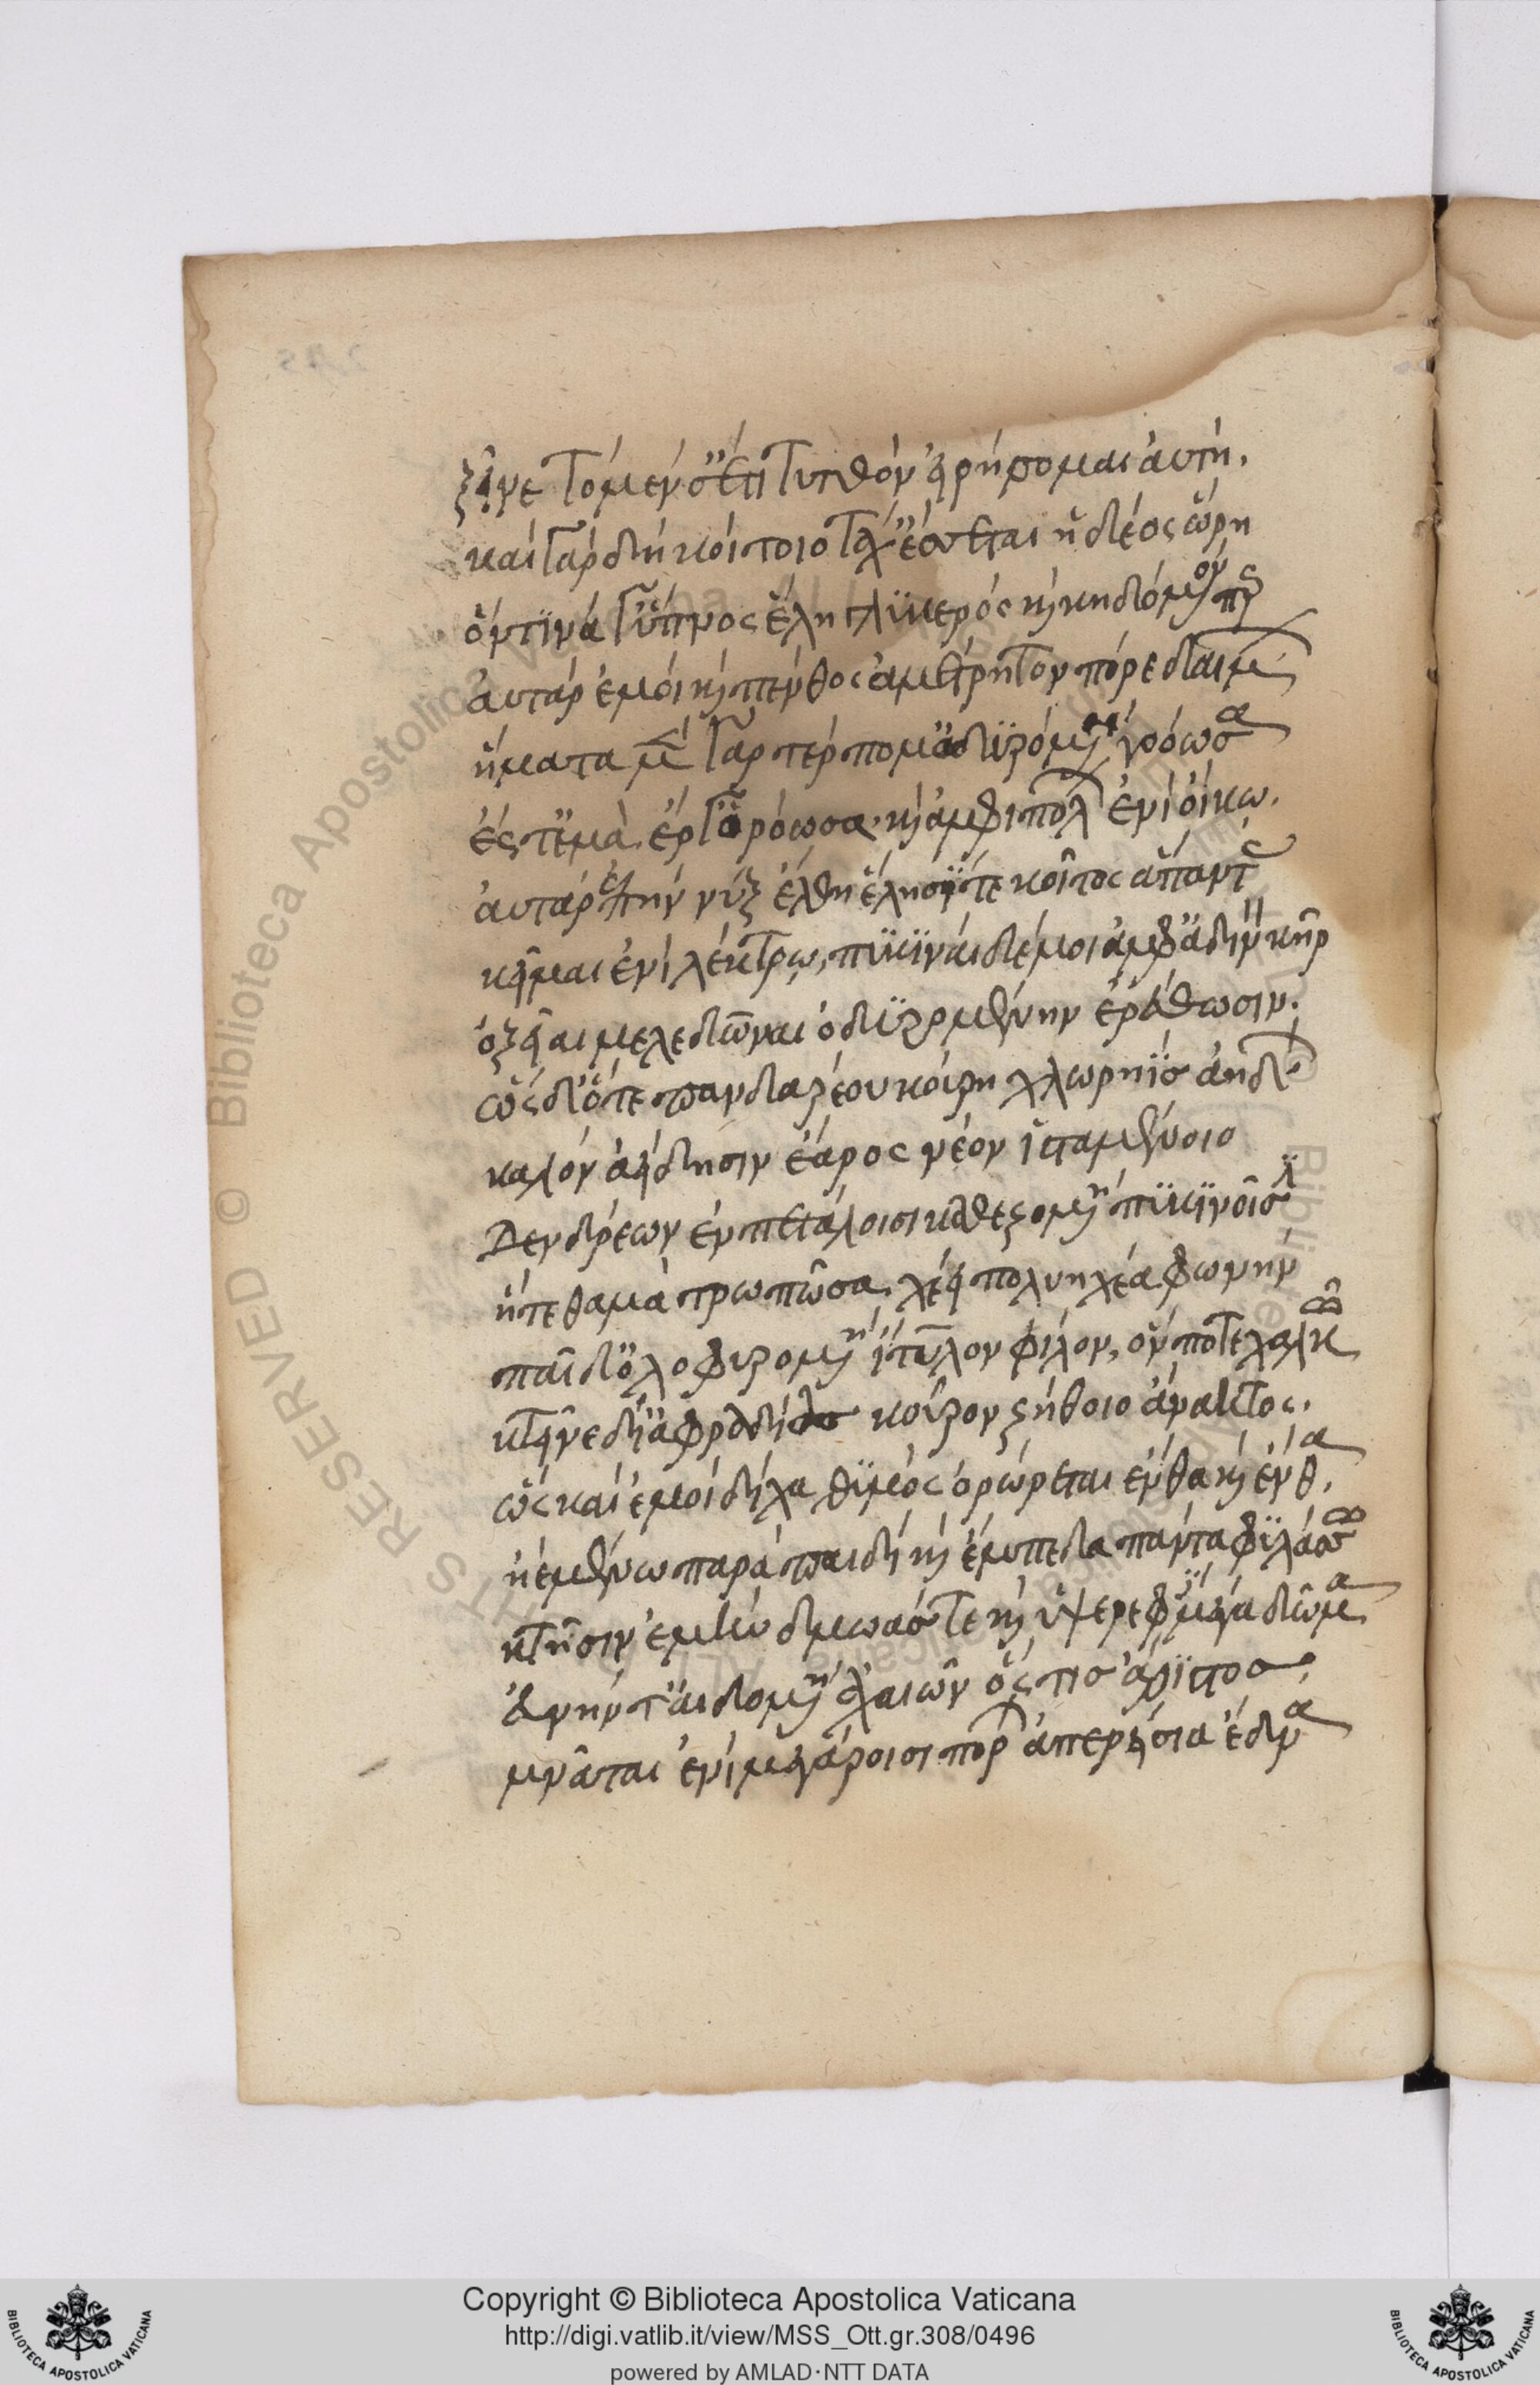 ξεῖνε τὸ μέν σ' ἔτι τυτθὸν εἰρήσομαι αὐτή.
καὶ γὰρ δὴ κοίτοιο τάχ' ἔσσεται ἡδέος ὥρη
ὅντινά γ' ὕπνος ἕλη γλυκερὸς καὶ κηδόμενόν περ
αὐτὰρ ἐμοὶ καὶ πένθος ἀμέτρητον πόρε δαίμων
ἤματα μὲν γὰρ τέρπομ' ὀδυρομένη γοόωσα
ἔς τ' ἐμὰ ἔργ' ὁρόωσα καὶ ἀμφιπόλων ἐνὶ οἴκω.
αὐτὰρ ἐπὴν νὺξ ἔλθη ἕλησί τε κοῖτος ἅπαντας
κεῖμαι ἐνὶ λέκτρω, πυκιναὶ δέ μοι ἀμφ' ἀδινὸν κῆρ
ὀξεῖαι μελεδῶναι ὀδυρομένην ἐρέθουσιν.
ὡς δ' ὅτε πανδαρέου κούρη χλωρηῒς ἀηδὼν
καλὸν ἀείδησιν ἔαρος νέον ἱσταμένοιο
Δενδρέων ἐν πετάλοισι καθεζομένη πυκινοῖσιν
ἥτε θαμὰ τρωπῶσα χέει πολυηχέα φωνὴν
παῖδ' ὀλοφυρομένη ἴτυλον φίλον, ὅν ποτε χαλκῶ
κτεῖνε δι' ἀφραδίας κοῦρον ζήθοιο ἄνακτος.
ὣς καὶ ἐμοὶ δίχα θυμὸς ὀρώρεται ἔνθα καὶ ἔνθα.
ἠὲ μένω παρὰ παιδὶ καὶ ἔμπεδα πάντα φυλάσσω
κτῆσιν ἐμὴν δμωάς τε καὶ ὑψερεφὲς μέγα δῶμα
εὐνήν τ' αἰδομένη ἀχαιῶν ὅς τις ἄριστος
μνᾶται ἐνὶ μεγάροισι πορὼν ἀπερείσια ἕδνα
Copyright © Biblioteca Apostolica Vaticana
http://digi.vatlib.it/view/MSS_Ott.gr.308/0496
powered by AMLAD·NTT DATA